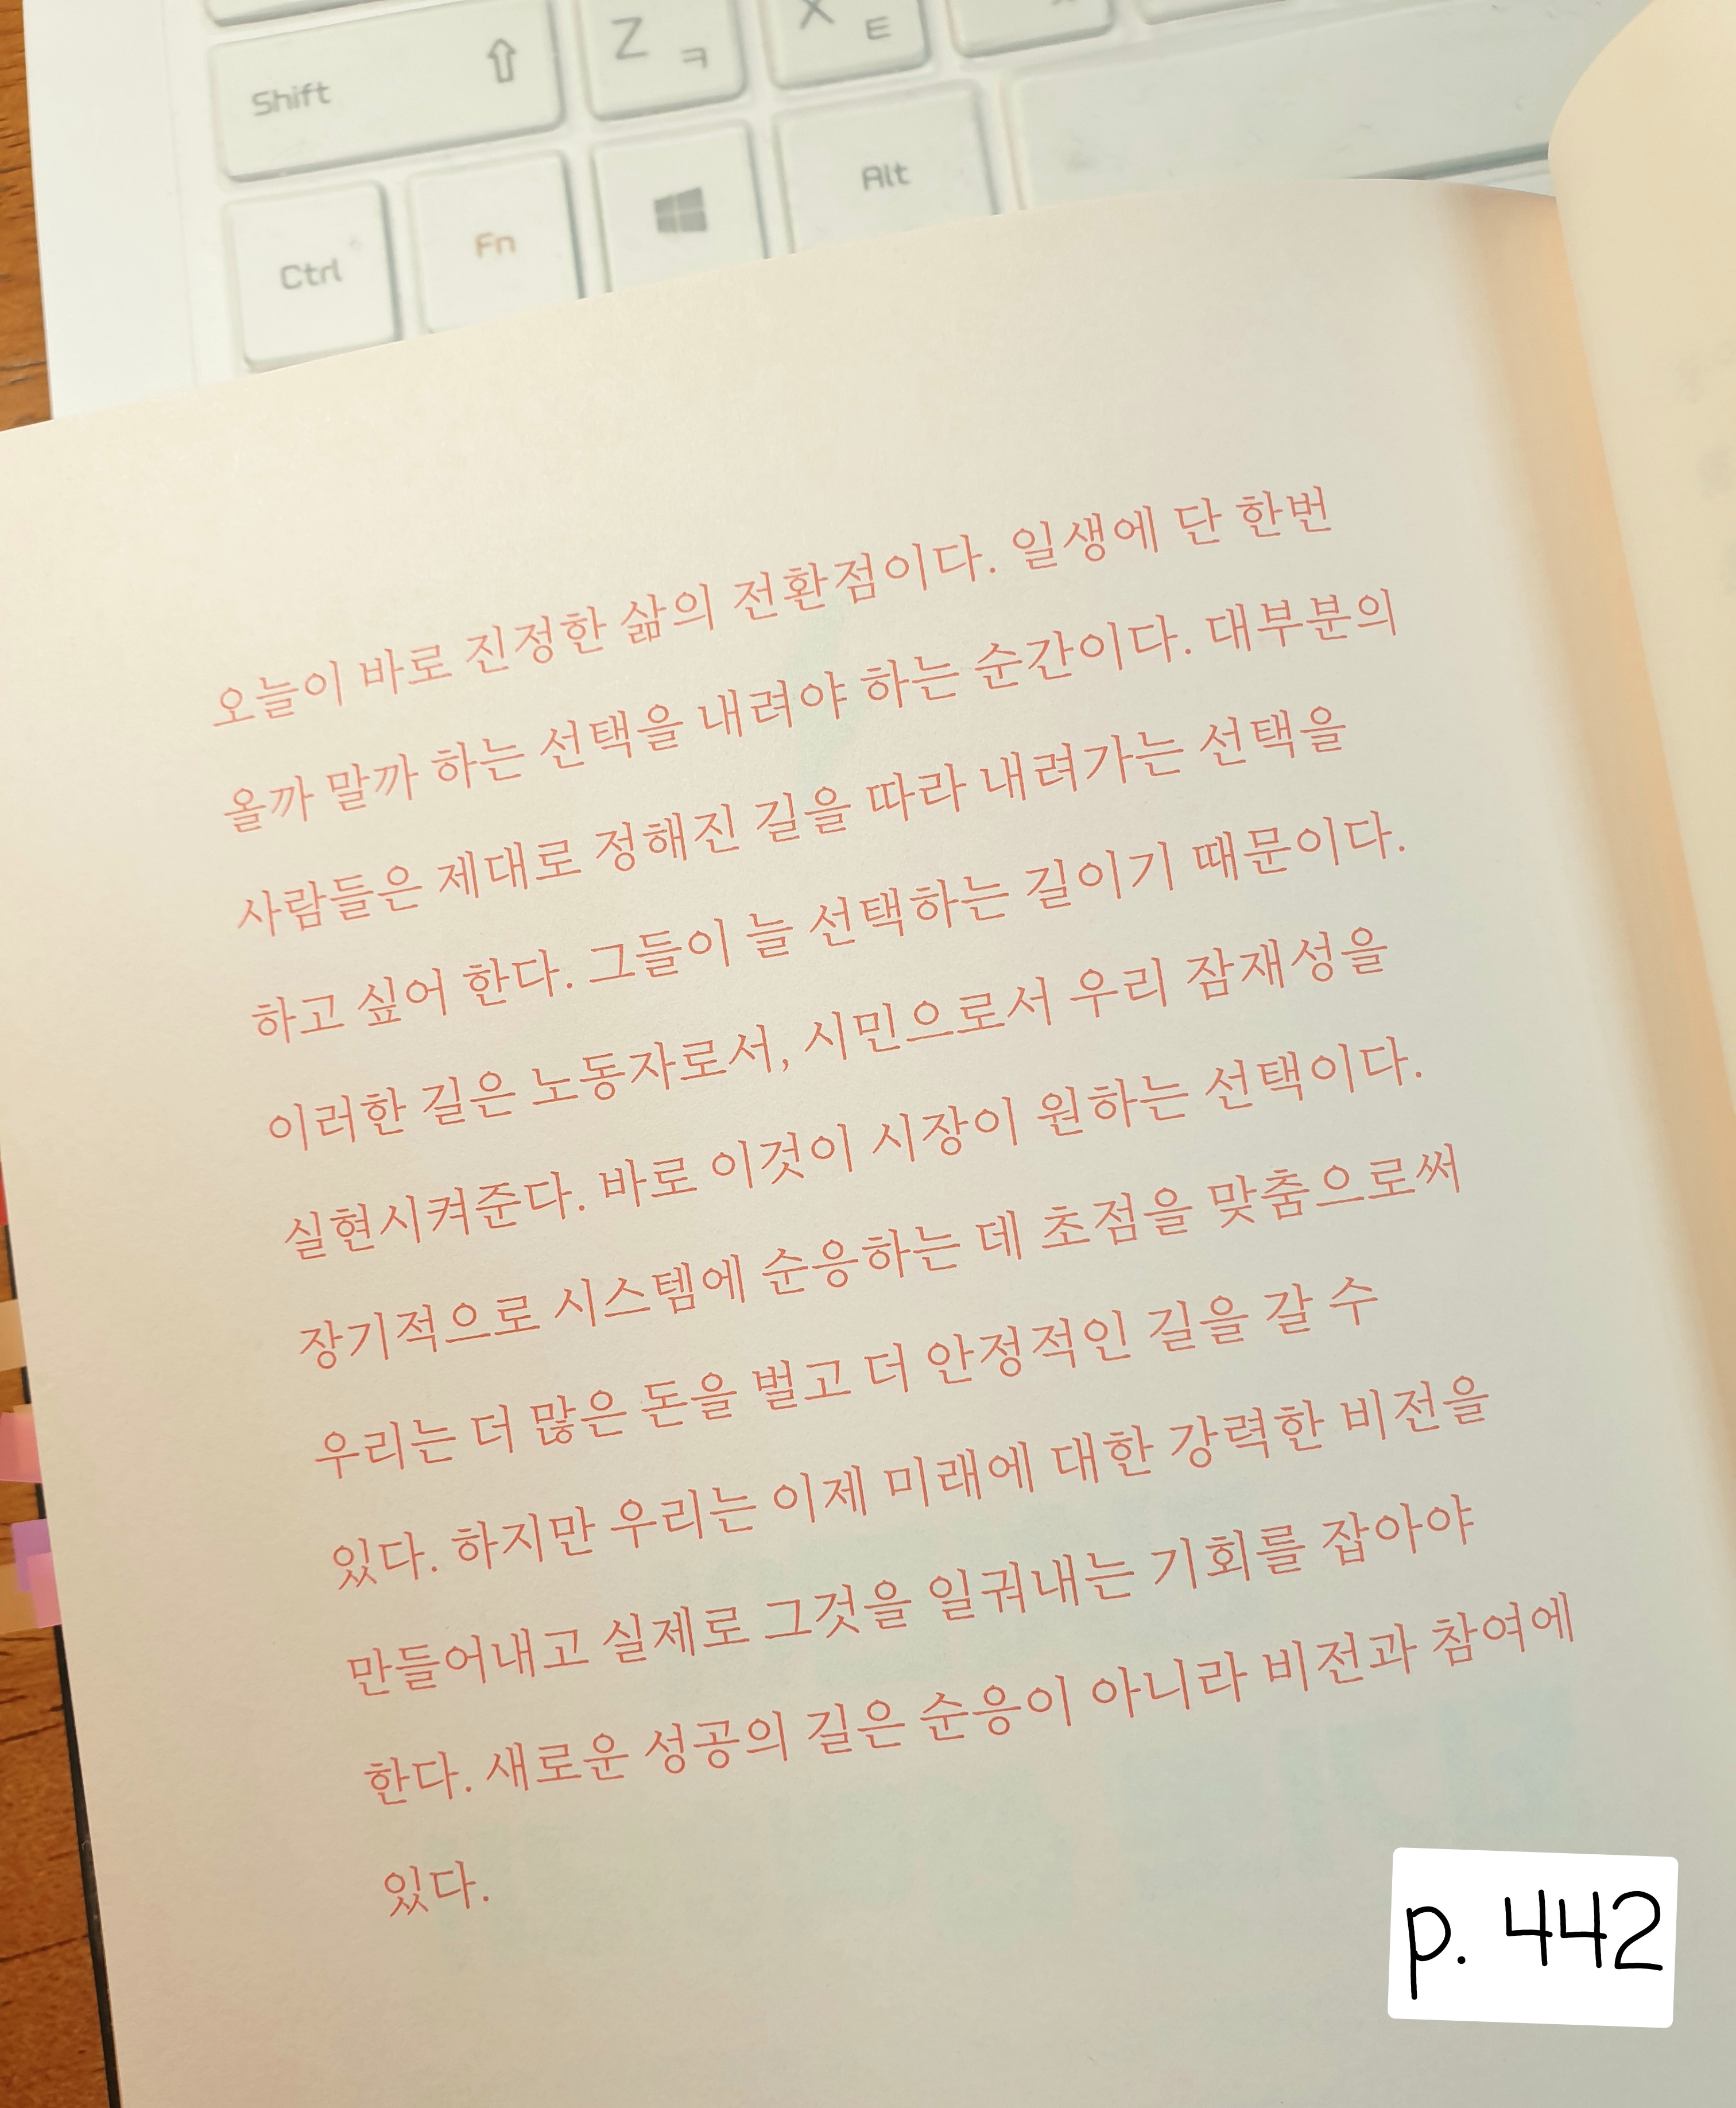 Shift ⇧
Z ㅋ
X ㅌ
Ctrl
Fn
Alt
오늘이 바로 진정한 삶의 전환점이다. 일생에 단 한번
올까 말까 하는 선택을 내려야 하는 순간이다. 대부분의
사람들은 제대로 정해진 길을 따라 내려가는 선택을
하고 싶어 한다. 그들이 늘 선택하는 길이기 때문이다.
이러한 길은 노동자로서, 시민으로서 우리 잠재성을
실현시켜준다. 바로 이것이 시장이 원하는 선택이다.
장기적으로 시스템에 순응하는 데 초점을 맞춤으로써
우리는 더 많은 돈을 벌고 더 안정적인 길을 갈 수
있다. 하지만 우리는 이제 미래에 대한 강력한 비전을
만들어내고 실제로 그것을 일궈내는 기회를 잡아야
한다. 새로운 성공의 길은 순응이 아니라 비전과 참여에
있다.
p. 442